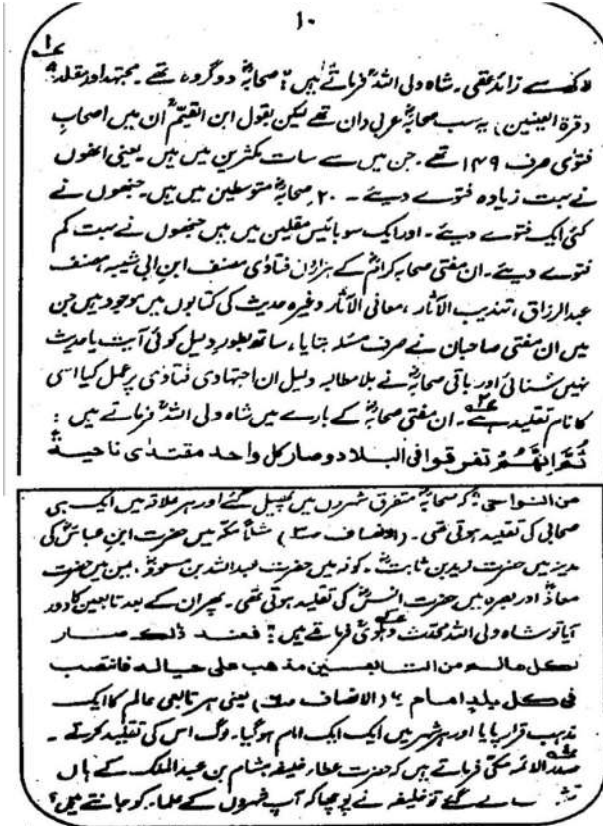 ۱۰
لاکھ سے زائد تھی۔ شاہ ولی اللہؒ فرماتے ہیں: صحابہؓ دو گروہ تھے۔ مجتہد اور مقلد
(قرۃ العینین) یہ سب صحابہؓ عربی دان تھے لیکن بقول ابن القیمؒ ان میں اصحابِ
فتویٰ صرف ۱۴۹ تھے۔ جن میں سے سات مکثرین میں ہیں۔ یعنی انھوں
نے بہت زیادہ فتوے دیئے۔ ۲۰ صحابہؓ متوسطین میں ہیں۔ جنھوں نے
کئی ایک فتوے دیئے۔ اور ایک سو بائیس مقلین میں ہیں جنھوں نے بہت کم
فتوے دیئے۔ ان مفتی صحابہ کرامؓ کے ہزاروں فتاویٰ مصنف ابن ابی شیبہ، مصنف
عبدالرزاق، تہذیب الآثار، معانی الآثار وغیرہ حدیث کی کتابوں میں موجود ہیں جن
میں ان مفتی صاحبان نے صرف مسئلہ بتایا، ساتھ بطور دلیل کوئی آیت یا حدیث
نہیں سنائی اور باقی صحابہؓ نے بلا مطالبہ دلیل ان اجتہادی فتاویٰ پر عمل کیا اسی
کا نام تقلید ہے۔ ان مفتی صحابہؓ کے بارے میں شاہ ولی اللہؒ فرماتے ہیں:
ثُمَّ اِنَّهُمْ تفرقوا فی البلاد وصار کل واحد مقتدٰی ناحیة
من النواحی: کہ صحابہؓ متفرق شہروں میں پھیل گئے اور ہر علاقہ میں ایک ہی
صحابی کی تقلید ہوتی تھی۔ (الانصاف ص۳) مثلاً مکہ میں حضرت ابن عباسؓ کی
مدینہ میں حضرت زید بن ثابتؓ، کوفہ میں حضرت عبداللہ بن مسعودؓ، یمن میں حضرت
معاذؓ اور بصرہ میں حضرت انسؓ کی تقلید ہوتی تھی۔ پھر ان کے بعد تابعین کا دور
آیا تو شاہ ولی اللہ محدث دہلویؒ فرماتے ہیں: فعند ذٰلک صار
لکل عالم من التابعین مذهب علی حیاله فانتصب
فی کل بلد امام (الانصاف ص۶) یعنی ہر تابعی عالم کا ایک
مذہب قرار پایا اور ہر شہر میں ایک ایک امام ہو گیا۔ لوگ اس کی تقلید کرتے۔
صدر الائمہ مکی فرماتے ہیں کہ حضرت عطاء خلیفہ ہشام بن عبدالملک کے ہاں
لے گئے تو خلیفہ نے پوچھا کہ آپ شہروں کے علماء کو جانتے ہیں؟